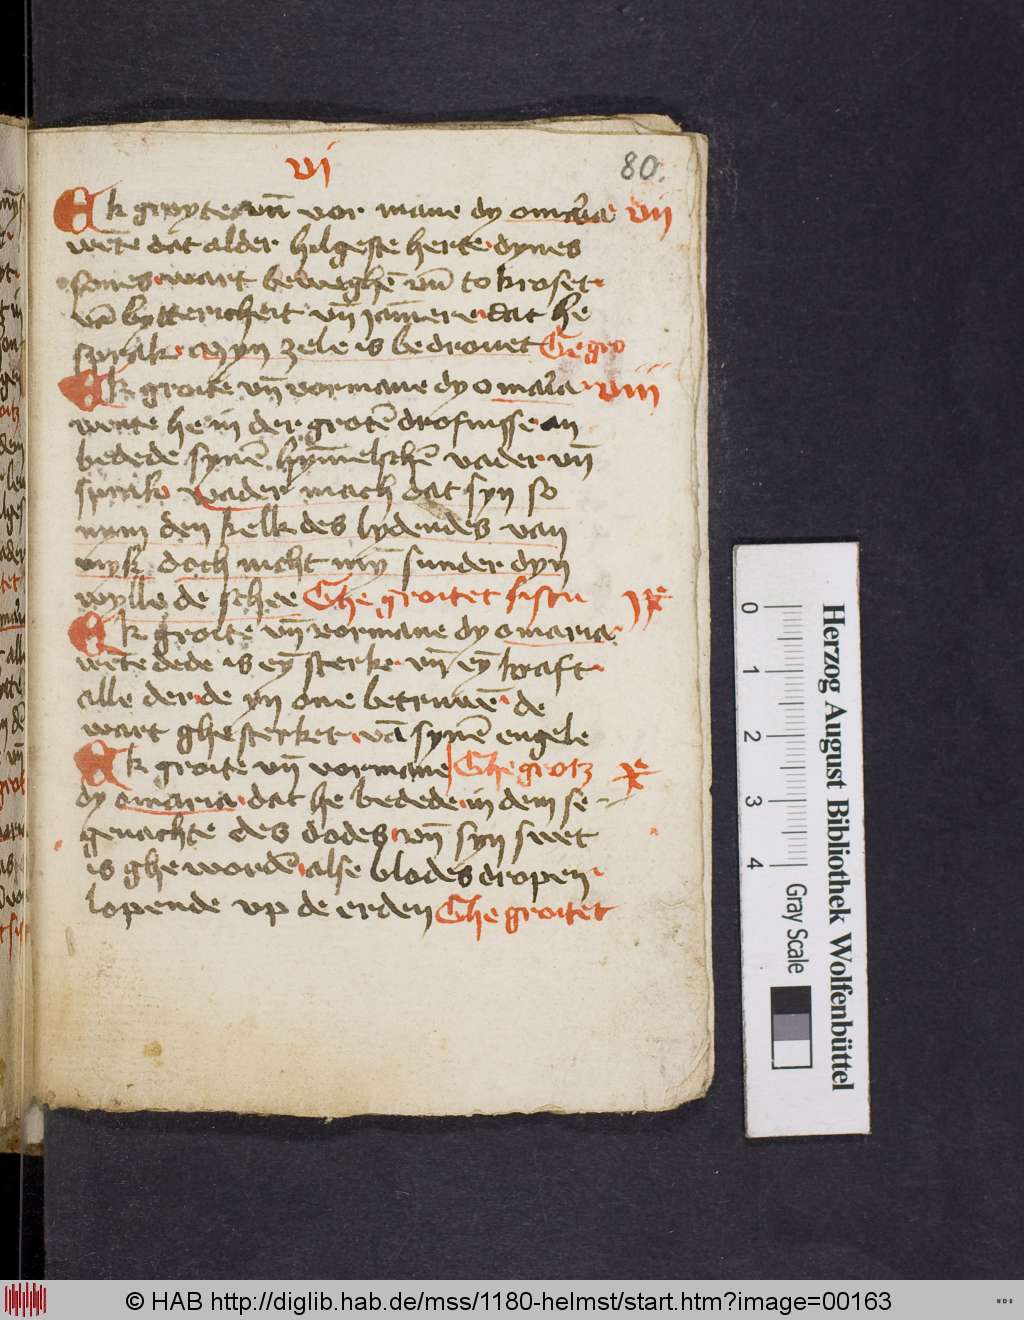 vi
80.
Ek groyte vn̄ vor mane dy o maria vii
wēte dat alder hilgeste herte dynes
sones wart beweghē vn̄ to kroset
vā byttericheit vn̄ jam̄ere dat he
sprak myn zele is bedrouet Gegro
Ek groite vn̄ vormane dy o maria viii
wente he in der grotē drofnisse an
bedede synē hym̄elschē vader vn̄
sprak vader mach dat syn so
nym den kelk des lydendes van
myk doch nicht myn sunder dyn
wylle de schee Ghe groitet sistu ix
Ek groite vn̄ vormane dy o maria
wēte dede is eȳ sterke vn̄ eȳ kraft
alle der de yn one betruwē de
wart ghesterket vā synē engele
Ek groite vn̄ vormane Ghe grotz x
dy o maria dat he bedede in dem se
genachte des dodes vn̄ syn swet
is ghe wordē alse blodes dropen
lopende vp de erden Ghe groitet
Herzog August Bibliothek Wolfenbüttel
0 1 2 3 4 Gray Scale
© HAB http://diglib.hab.de/mss/1180-helmst/start.htm?image=00163